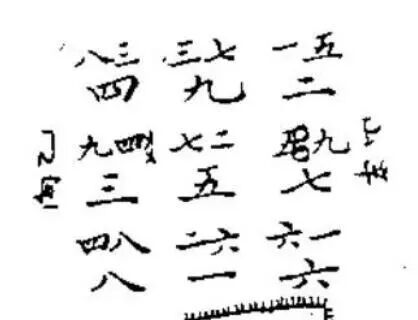 八三 三七 一五
四 九 二
九四 七二 九
三 五 七
四八 二六 六一
八 一 六